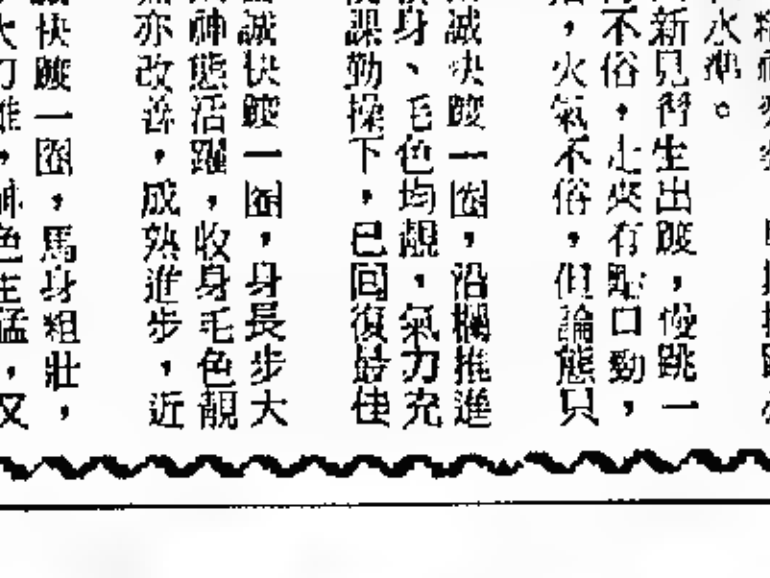 水準。
新見習生出跛，慢跳一
不俗，走來有點口勁，
，火氣不俗，但論態只
誠快跛一圈，沿欄推進
身、毛色均靚，氣力充
課勤操下，已回復最佳
誠快跛一圈，身長步大
神態活躍，收身毛色靚
亦改善，成熟進步，近
快跛一圈，馬身粗壯，
色生猛，又